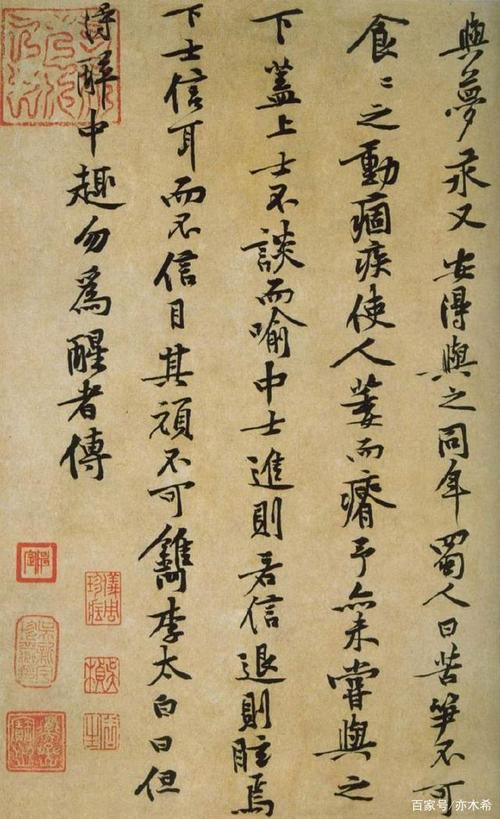 與夢永又安得與之同年蜀人曰苦笋不可
食〻之動痼疾使人萎而瘠予亦未嘗與之
下蓋上士不談而喻中士進則若信退則眩焉
下士信耳而不信目其頑不可鐫李太白曰但
得醉中趣勿為醒者傳
百家号/亦木希